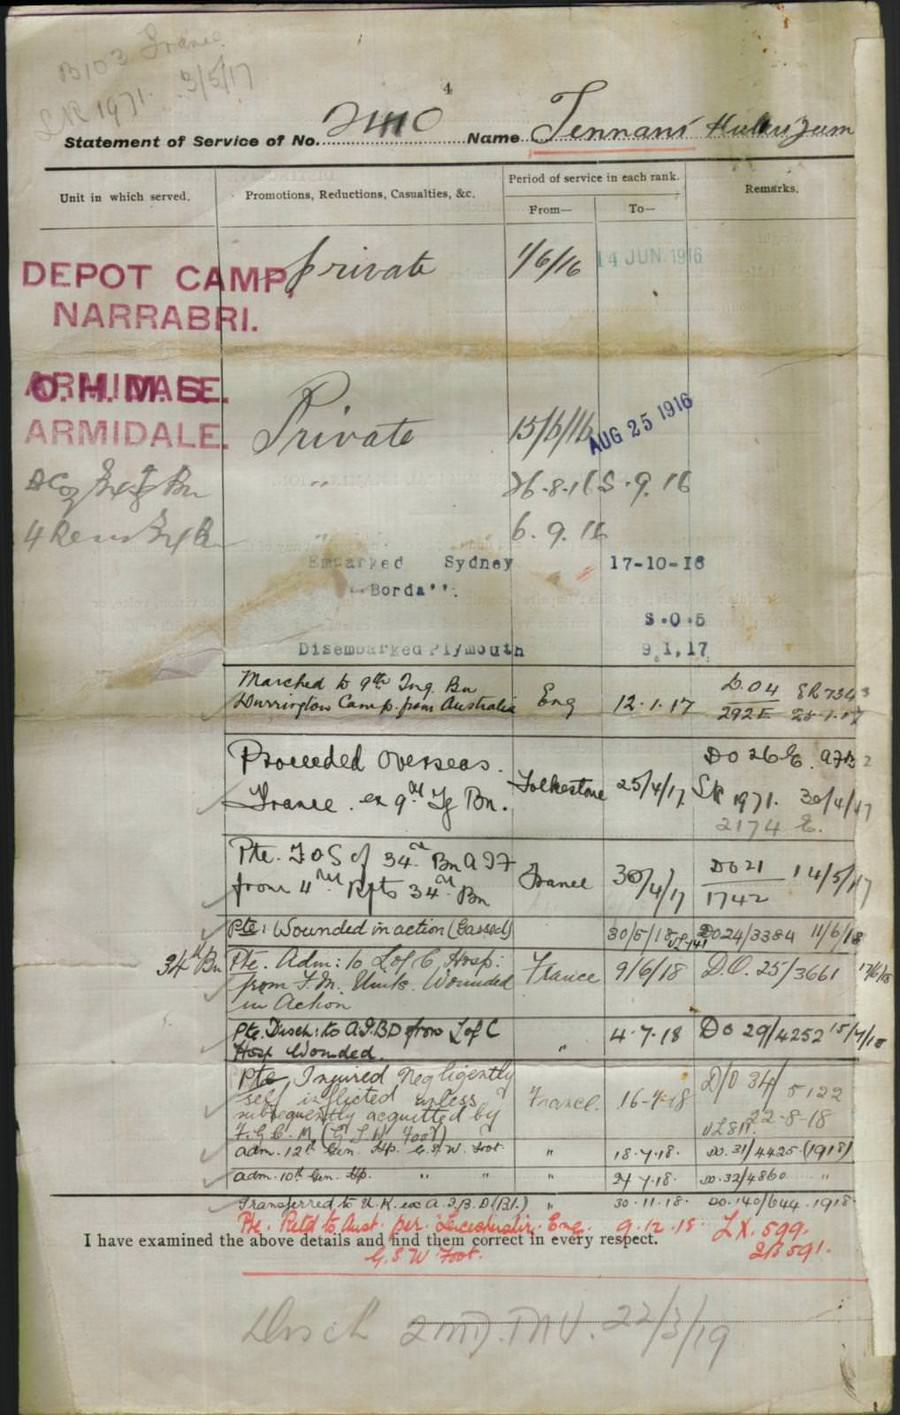 B103 France
LR 1971. 3/5/17
4
Statement of Service of No. Name Tennant
Unit in which served.
Promotions, Reductions, Casualties, &c.
Period of service in each rank.
From—
To—
Remarks.
DEPOT CAMP,
NARRABRI.
Private
1/6/16
14 JUN 1916
ARMIDALE.
Private
15/6/16
AUG 25 1916
26-8-16
5.9.16
"
6.9.16
"
Embarked Sydney
17-10-16
"Borda".
S.O.5
Disembarked Plymouth
9.1.17
Marched to 9th Tng. Bn
Durrington Camp. from Australia
Eng
12.1.17
D.O 4
292E
Proceeded Overseas.
France. ex 9th Tg Bn.
Folkestone
25/4/17
DO 26E.
LR 1971. 30/4/17
2174 E.
Pte. TOS of 34th Bn AIF
from 4th Rfts 34th Bn
France
30/4/17
DO 21
1742
14/5/17
Pte: Wounded in action (Gassed)
30/5/18
DO24/3384 11/6/18
34th Bn
Pte. Adm: to L of C Hosp:
from F.M. Units. Wounded
in Action
France
9/6/18
D.O. 25/3661
Pte. Disch: to A.I.B.D from L of C
Hosp Wounded.
"
4-7-18
DO 29/4252 15/7/18
Pte, Injured Negligently
self inflicted unless
subsequently acquitted by
F.G.C.M (G S W Foot)
France.
16-7-18
D/O 34/5122
22-8-18
adm. 12th Gen. Hp. G.S.W. Foot
"
18.7.18.
DO. 31/4425 (1918)
adm. 10th Gen. Hp. " "
"
DO. 32/4860 "
Transferred to U.K. ex A.I.B.D (Bl.)
"
30.11.18.
DO. 140/644 1918
Pte. Retd to Aust. per. Leicestershire Eng. 9.12.18. LX.599.
I have examined the above details and find them correct in every respect.
G.S.W Foot.
2B591.
Disch 2nd M.D. 22/3/19